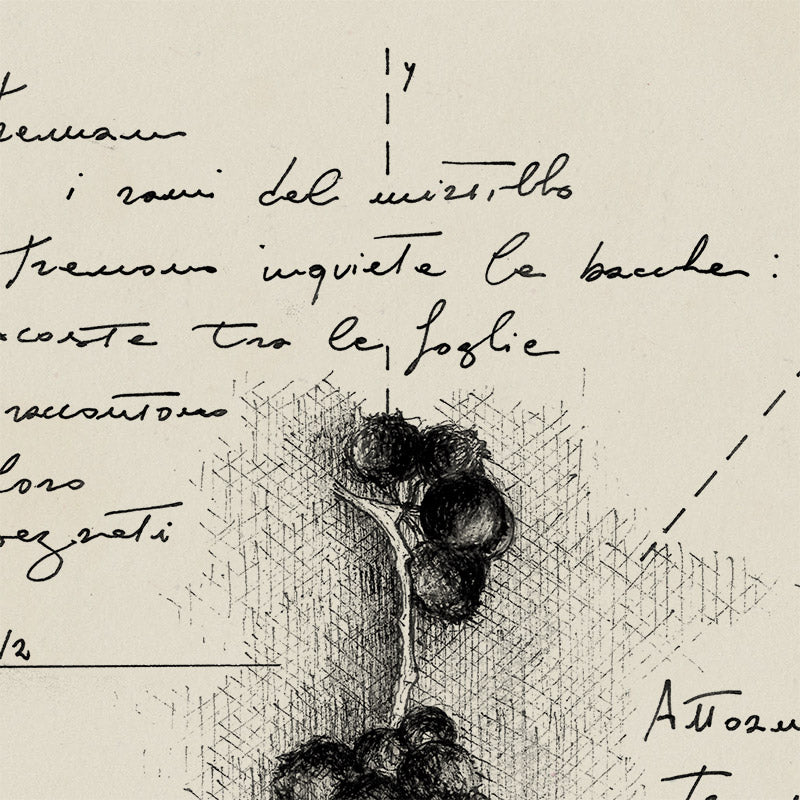 y
tremano
i rami del mirtillo
tremano inquiete le bacche :
tra le foglie
raccontano
loro
segreti
/2